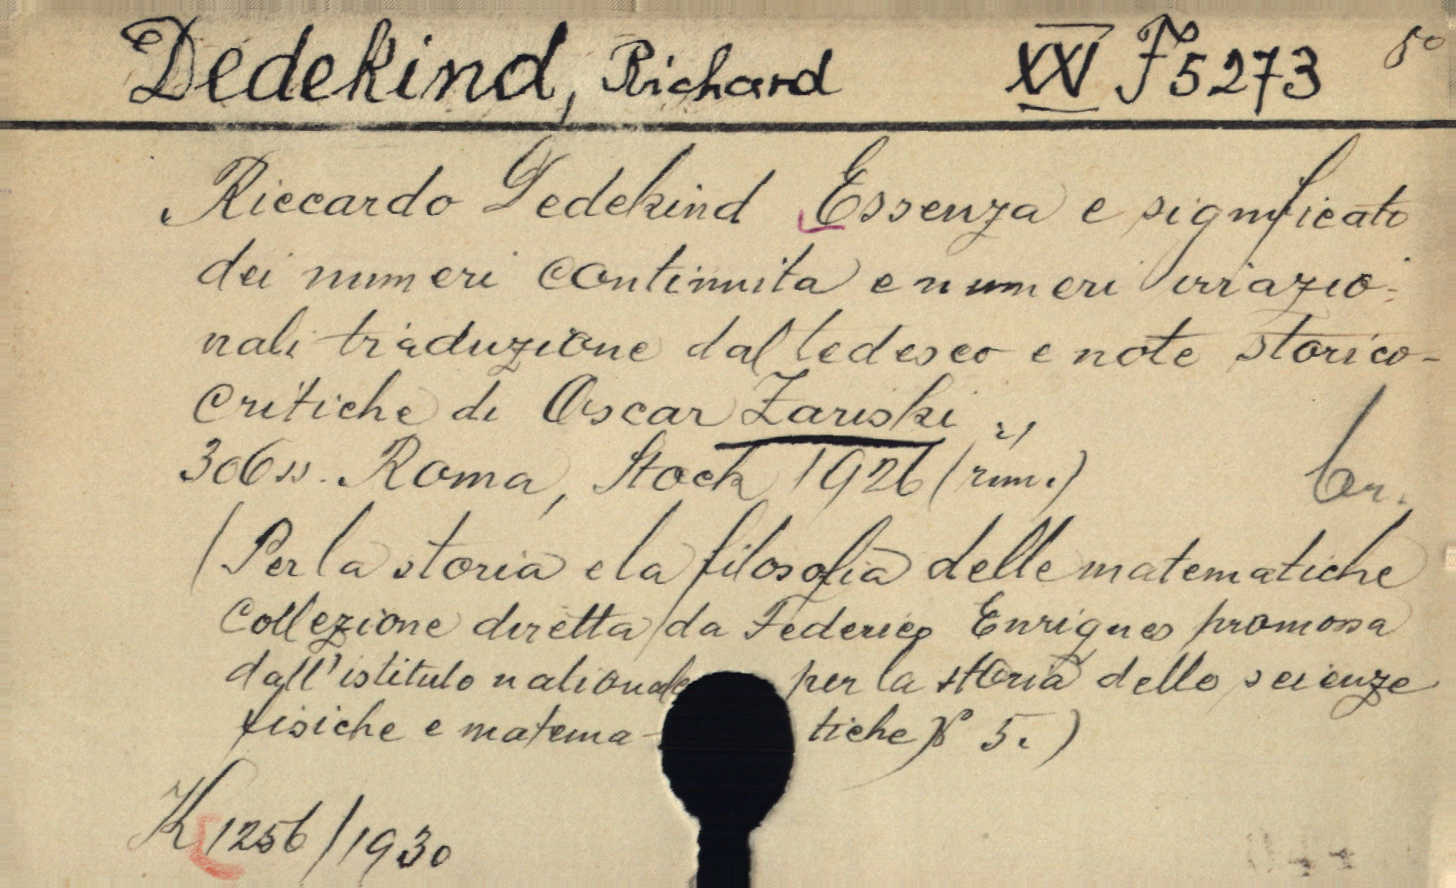 Dedekind, Richard XXI F5273 8°
Riccardo Dedekind Essenza e significato
dei numeri continuita e numeri irrazio-
nali traduzione dal tedesco e note storico-
critiche di Oscar Zariski
306 ss. Roma, Stock 1926 (rum.)
(Per la storia e la filosofia delle matematiche
collezione diretta da Federico Enriques promossa
dall'istituto nationale per la storia delle scienze
fisiche e matema- tiche № 5.)
K 1256/1930